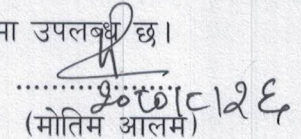 मा उपलब्ध छ।
२०८०।८।२६
(मोतिम आलम)